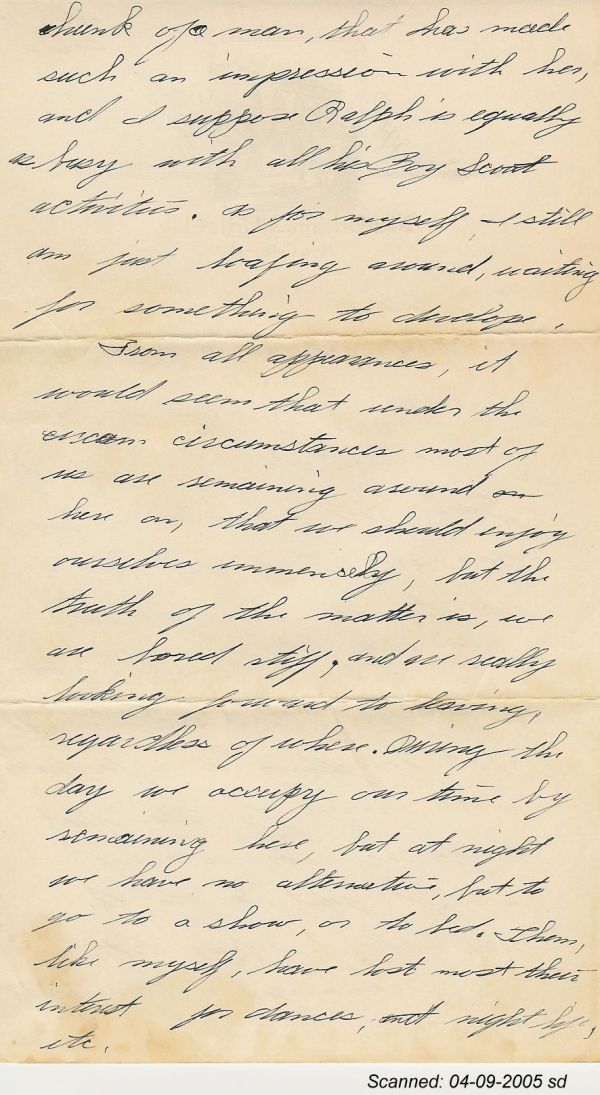 chunk of a man, that has made
such an impression with her,
and I suppose Ralph is equally
as busy with all his Boy Scout
activities. As for myself, I still
am just loafing around, waiting
for something to develope.
From all appearances, it
would seem that under the
circum circumstances most of
us are remaining around on
here on, that we should enjoy
ourselves immensely, but the
truth of the matter is, we
are bored stiff, and are really
looking forward to leaving,
regardless of where. During the
day we occupy our time by
remaining here, but at night
we have no alternative, but to
go to a show, or to bed. Them,
like myself, have lost most their
interest for dances, night life,
etc.
Scanned: 04-09-2005 sd